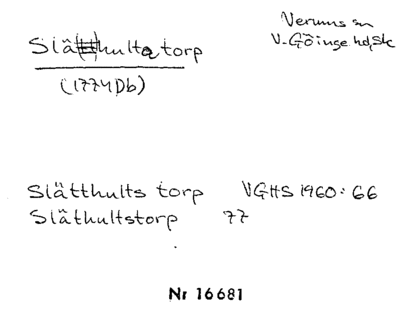 Slät(t)hulta torp
(1774Db)
Verums sn
V-Göinge hd, Sk
Slätthults torp VGHS 1960: 66
Släthultstorp 77
Nr 16681